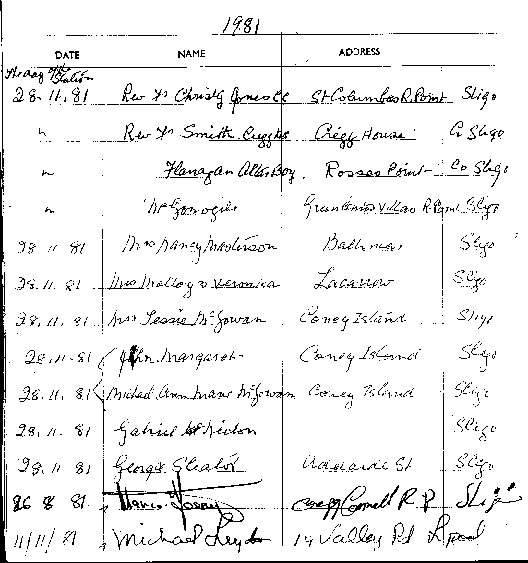 1981
DATE NAME ADDRESS
The day of the Station
28.11.81 Rev Fr Christy St Columbas R. Point Sligo
" Rev Fr Smith Cregg House Co Sligo
" Flanagan Altar Boy Rosses Point Co Sligo
" Villas R Point Sligo
28 11 81 Mrs Nancy Masterson Sligo
28.11.81 Mrs Molloy & Veronica Sligo
28.11.81 Mrs Tessie McGowan Coney Island Sligo
28-11-81 John. Margaret Coney Island Sligo
28.11.81 Michael Ann Marie McGowan Coney Island Sligo
28.11.81 Gabriel Sligo
28.11.81 George Adelaide St Sligo
26 8 81 R. P Sligo
11/11/81 Michael 14 Valley Rd L.pool